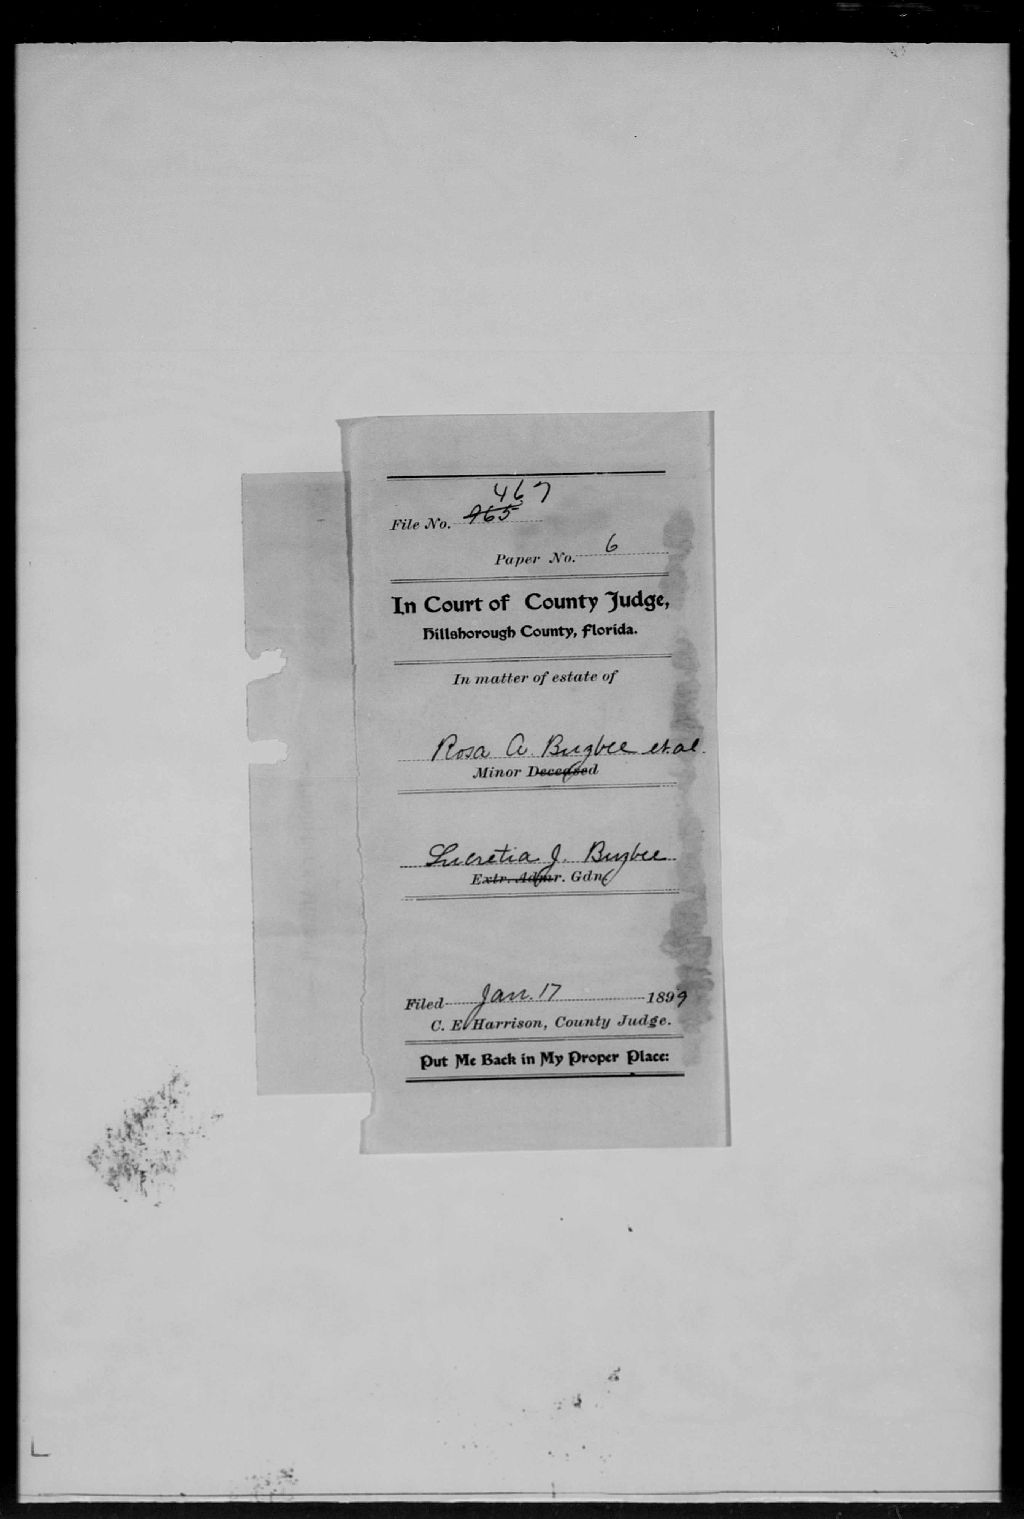 467
File No. 965
Paper No. 6
In Court of County Judge,
Hillsborough County, Florida.
In matter of estate of
Rosa A. Bugbee et al.
Minor Deceased
Lucretia J. Bugbee
Extr. Admr. Gdn.
Filed Jan. 17 1899
C. E. Harrison, County Judge.
Put Me Back in My Proper Place: